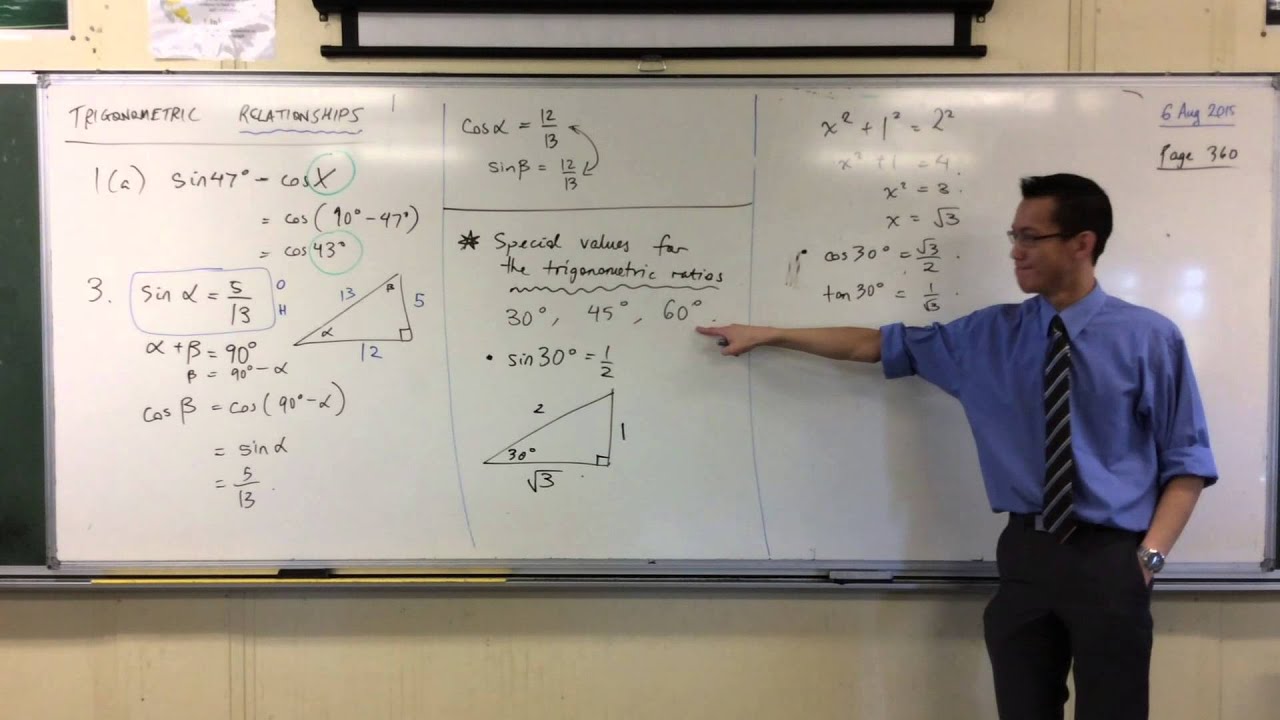 TRIGONOMETRIC RELATIONSHIPS
1(a) sin47° = cosX
= cos(90°-47°)
= cos43°
3. sin α = 5/13 O H
13 β 5
α
12
α + β = 90°
β = 90° - α
cos β = cos(90°-α)
= sin α
= 5/13
cos α = 12/13
sin β = 12/13
* Special values for
the trigonometric ratios
30°, 45°, 60°.
• sin30° = 1/2
2 1
30°
√3
x² + 1² = 2²
x² + 1 = 4.
x² = 3.
x = √3
• cos30° = √3/2.
tan30° = 1/√3.
6 Aug 2015
Page 360